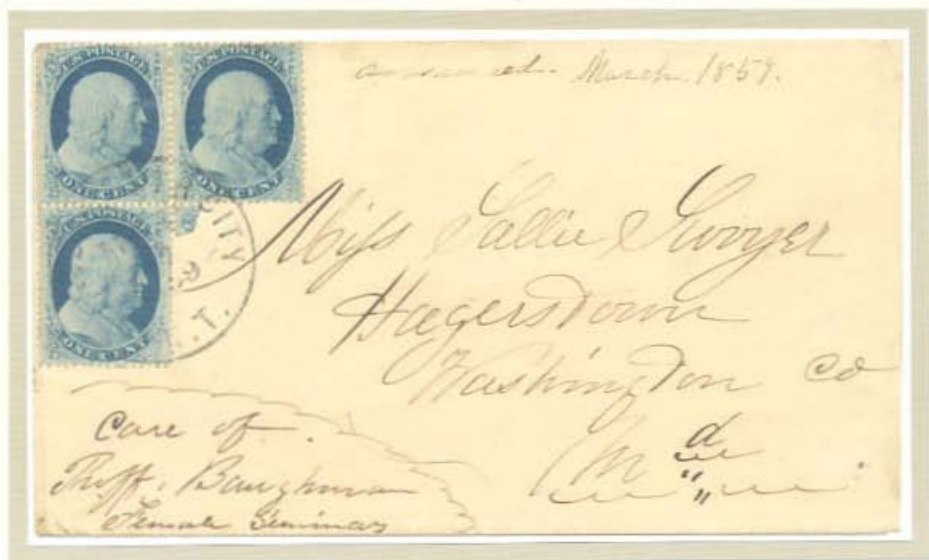 U.S. POSTAGE
ONE CENT
U.S. POSTAGE
ONE CENT
U.S. POSTAGE
ONE CENT
CITY
. T.
March. 1859.
Miss Sallie Swoyer
Hagerstown
Washington Co
Md
Care of.
Proff. Baughman
Female Seminary